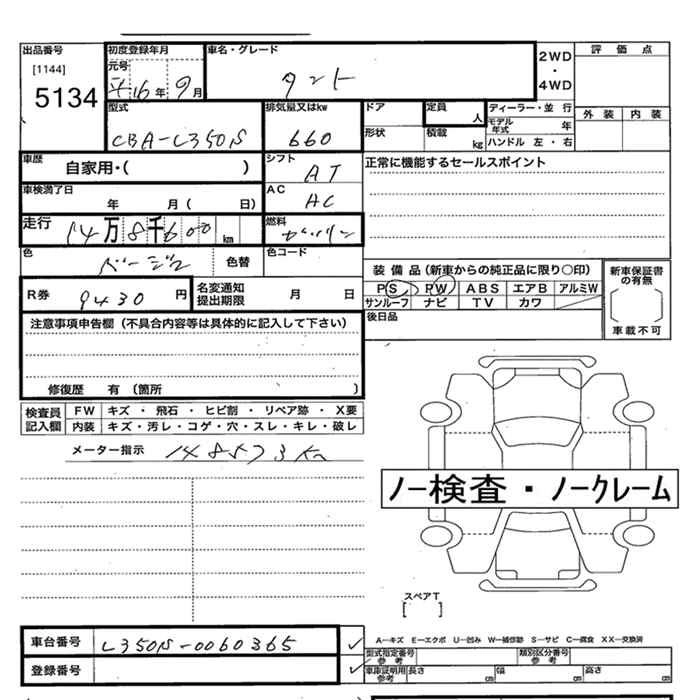 出品番号 初度登録年月 車名・グレード 2WD・4WD 評価点
[1144] 元号
5134 平16年9月 タント
型式 排気量又はkw ドア 定員 人 ディーラー・並行 外装 内装
CBA-L350S 660 形状 積載 kg モデル年式 年
ハンドル 左・右
車歴 自家用・( ) シフト AT 正常に機能するセールスポイント
車検満了日 年 月( 日) AC AC
走行 14万8千600km 燃料 ガソリン
色 ベージュ 色替 色コード
装備品(新車からの純正品に限り○印) 新車保証書の有無
R券 9430円 名変通知提出期限 月 日 PS PW ABS エアB アルミW
サンルーフ ナビ TV カワ
車載不可
注意事項申告欄(不具合内容等は具体的に記入して下さい) 後日品
修復歴 有(箇所 )
検査員記入欄 FW キズ・飛石・ヒビ割・リペア跡・X要
内装 キズ・汚レ・コゲ・穴・スレ・キレ・破レ
メーター指示 148573km
ノー検査・ノークレーム
スペアT
[ ]
車台番号 L350S-0060365
A-キズ E-エクボ U-凹み W-補修跡 S-サビ C-腐食 XX-交換済
型式指定番号 参考 類別区分番号 参考
登録番号 車庫証明用 参考 長さ cm 幅 cm 高さ cm